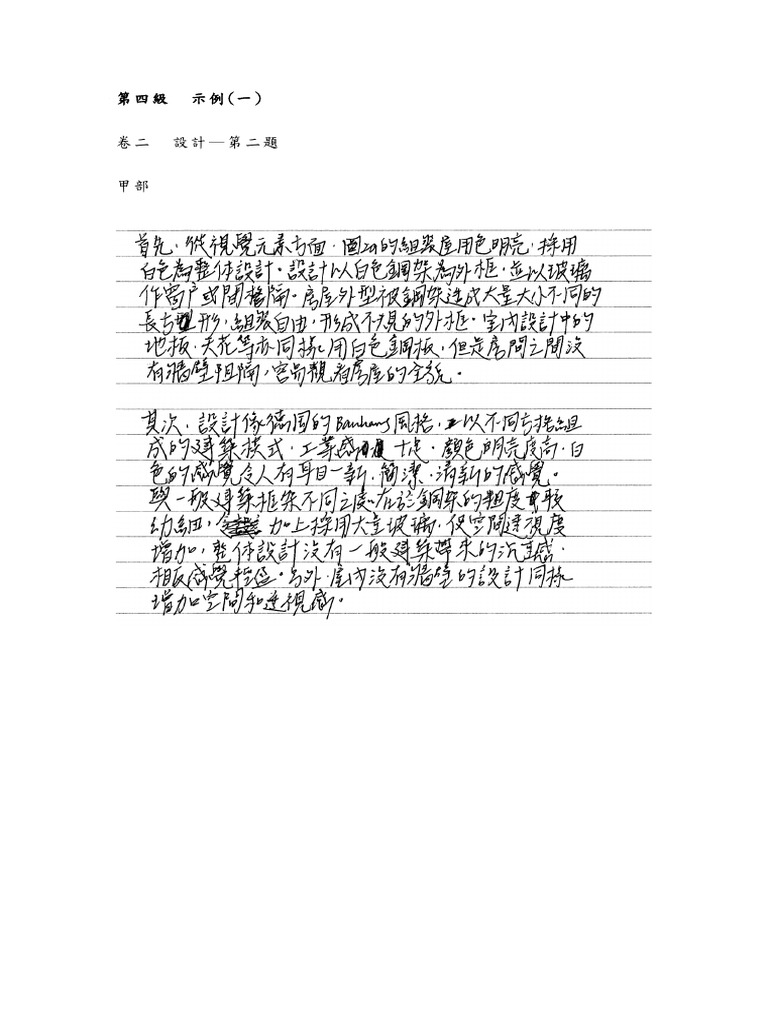 第四級 示例(一)
卷二 設計—第二題
甲部
首先,從視覺元素方面,圖2a的組裝屋用色明亮,採用
白色為整体設計。設計以白色鋼架為外框,並以玻璃
作窗户或間隔。房屋外型被鋼架造成大量大小不同的
長方形,組裝自由,形成不規的外框。室內設計中的
地板、天花等亦同樣用白色鋼板,但是房間之間沒
有牆壁阻隔,容易觀看房屋的全貌。
其次,設計像德国的Bauhaus風格,以不同方格組
成的建築模式,工業感十足,顏色明亮度高,白
色的感覺令人有耳目一新,簡潔,清新的感覺。
與一般建築框架不同之處在於鋼架的粗度較
幼細,加上採用大量玻璃,使空間透視度
增加,整体設計沒有一般建築帶來的沉重感,
相反感覺輕盈。另外,屋內沒有牆壁的設計同樣
增加空間和透視感。